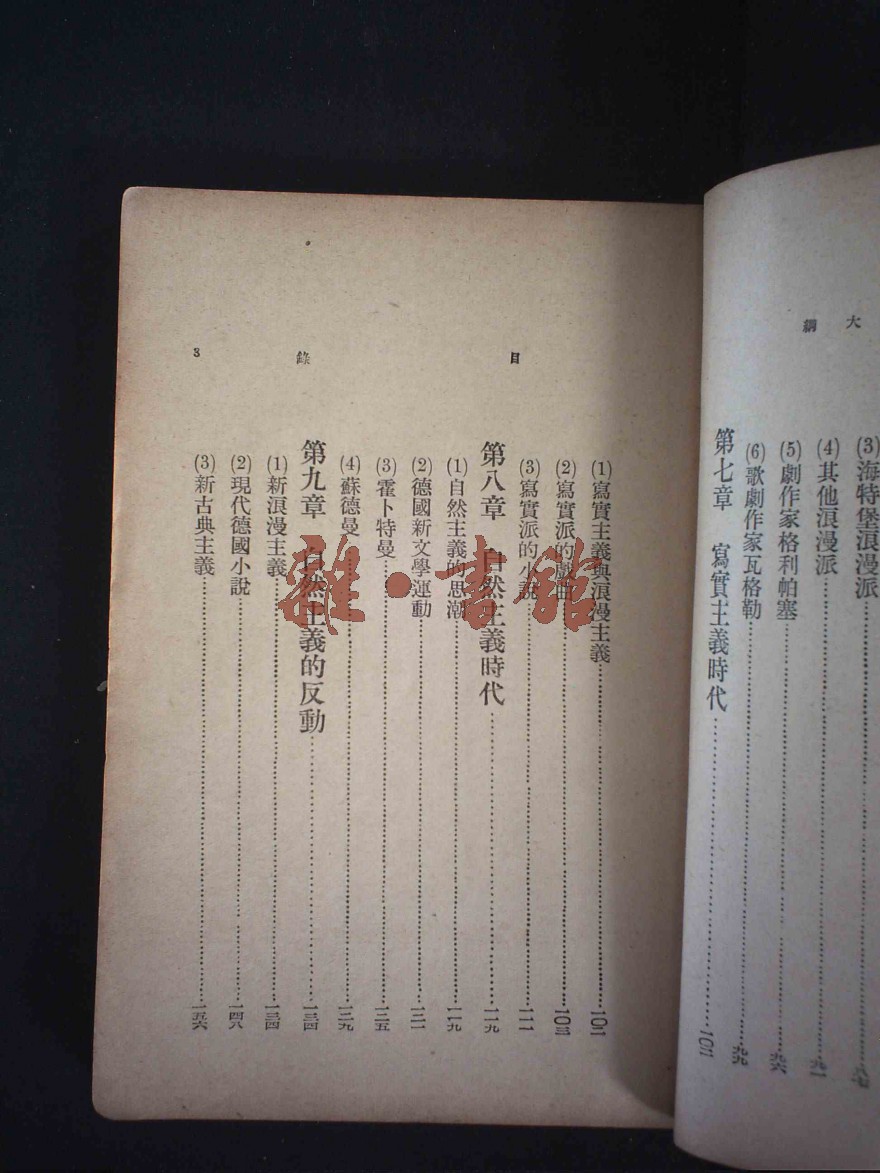 大綱
(3)海特堡浪漫派……八七
(4)其他浪漫派……九一
(5)劇作家格利帕塞……九六
(6)歌劇作家瓦格勒……九九
第七章 寫實主義時代……一〇二
目錄 3
(1)寫實主義與浪漫主義……一〇二
(2)寫實派的戲曲……一〇三
(3)寫實派的小說……一一一
第八章 自然主義時代……一一九
(1)自然主義的思潮……一一九
(2)德國新文學運動……一二一
(3)霍卜特曼……一二五
(4)蘇德曼……一二九
第九章 自然主義的反動……一三四
(1)新浪漫主義……一三四
(2)現代德國小說……一四八
(3)新古典主義……一五六
雜·書館